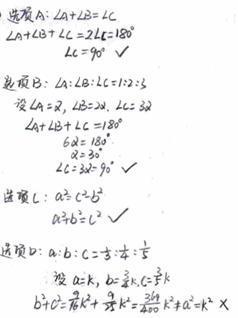 选项A: ∠A+∠B=∠C
∠A+∠B+∠C=2∠C=180°
∠C=90° ✓
选项B: ∠A:∠B:∠C=1:2:3
设∠A=x, ∠B=2x, ∠C=3x
∠A+∠B+∠C=180°
6x=180°
x=30°
∠C=3x=90° ✓
选项C: a²=c²-b²
a²+b²=c² ✓
选项D: a:b:c=1/3:1/4:1/5
设 a=k, b=3/4k, c=3/5k
b²+c²=9/16k²+9/25k²=369/400k²≠a²=k² ×